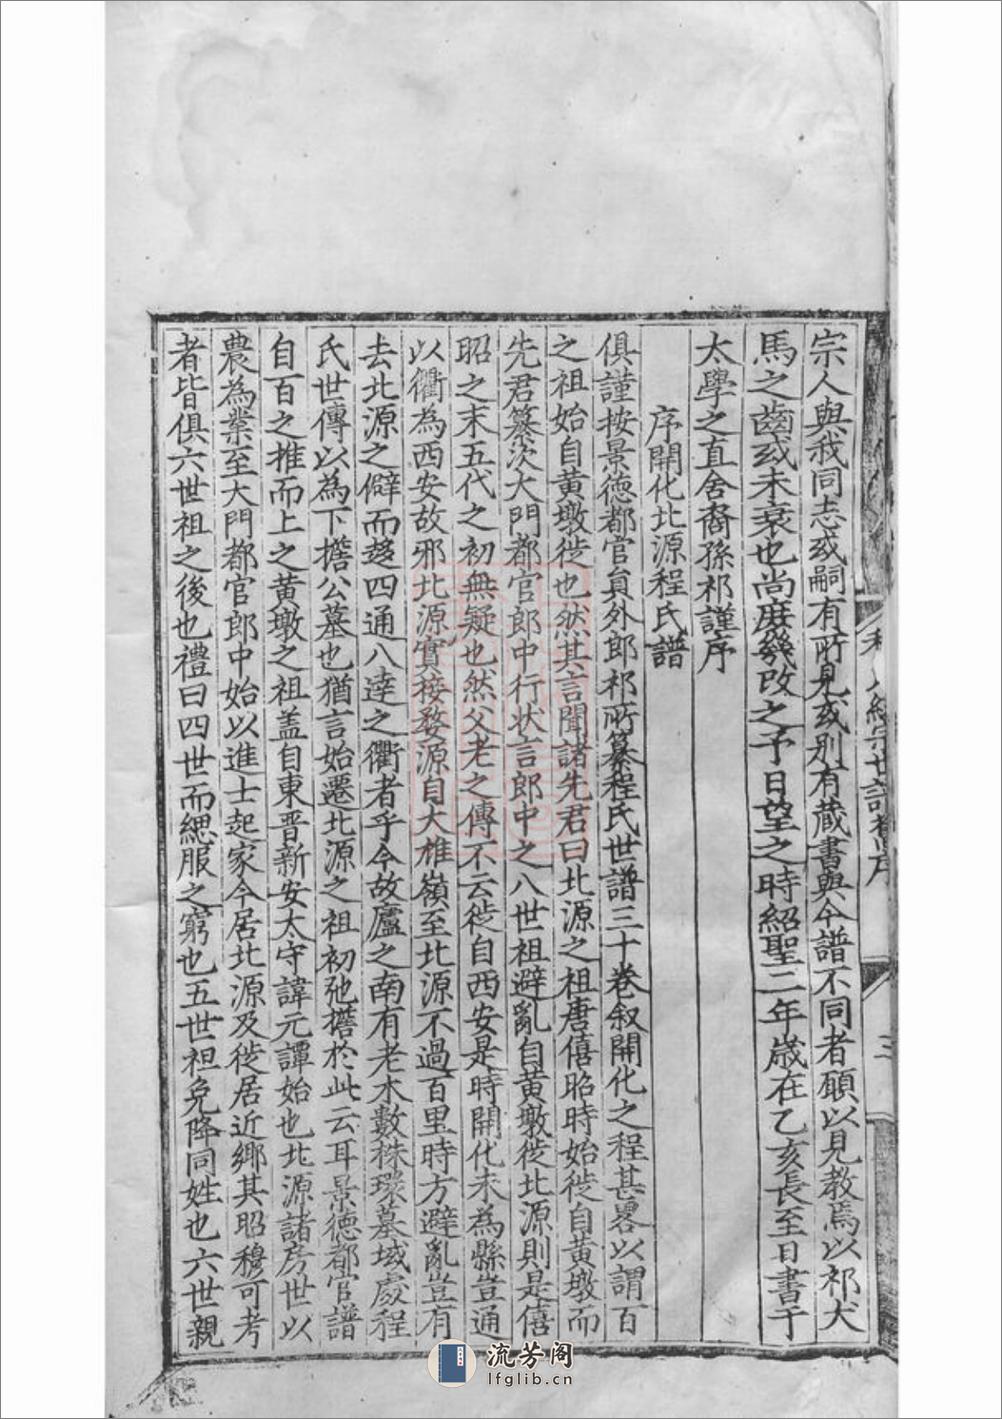 宗人與我同志或嗣有所見或别有蔵書與今譜不同者願以見教焉以祁犬
馬之齒或未衰也尚庶幾改之予日望之時紹聖二年歲在乙亥長至日書于
太學之直舍裔孫祁謹序
序開化北源程氏譜
俱謹按景徳都官員外郎祁所纂程氏世譜三十卷叙開化之程甚畧以謂百
之祖始自黄墩徙也然其言聞諸先君曰北源之祖唐僖昭時始徙自黄墩而
先君纂次大門都官郎中行状言郎中之八世祖避亂自黄墩徙北源則是僖
昭之末五代之初無疑也然父老之傳不云徙自西安是時開化未為縣豈通
以衢為西安故邪北源實接婺源自大雄嶺至北源不過百里時方避亂豈有
去北源之僻而趍四通八逹之衢者乎今故廬之南有老木數株環墓域處程
氏世傳以為下㩉公墓也猶言始遷北源之祖初弛㩉於此云耳景徳都官譜
自百之推而上之黄墩之祖盖自東晋新安太守諱元譚始也北源諸房世以
農為業至大門都官郎中始以進士起家今居北源及徙居近鄉其昭穆可考
者皆俱六世祖之後也禮曰四世而緦服之窮也五世袒免降同姓也六世親
三
流芳阁
lfglib.cn